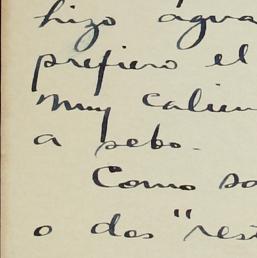 hizo agua
prefiero el
muy calien
a sebo.
Como so
o dos "rest